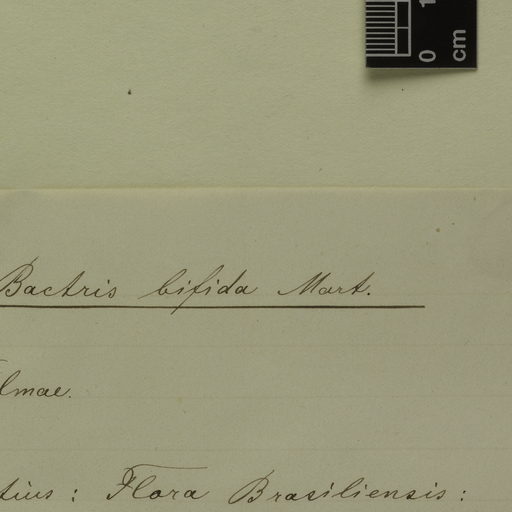 0 1
cm
Bactris bifida Mart.
lmae.
tius: Flora Brasiliensis: